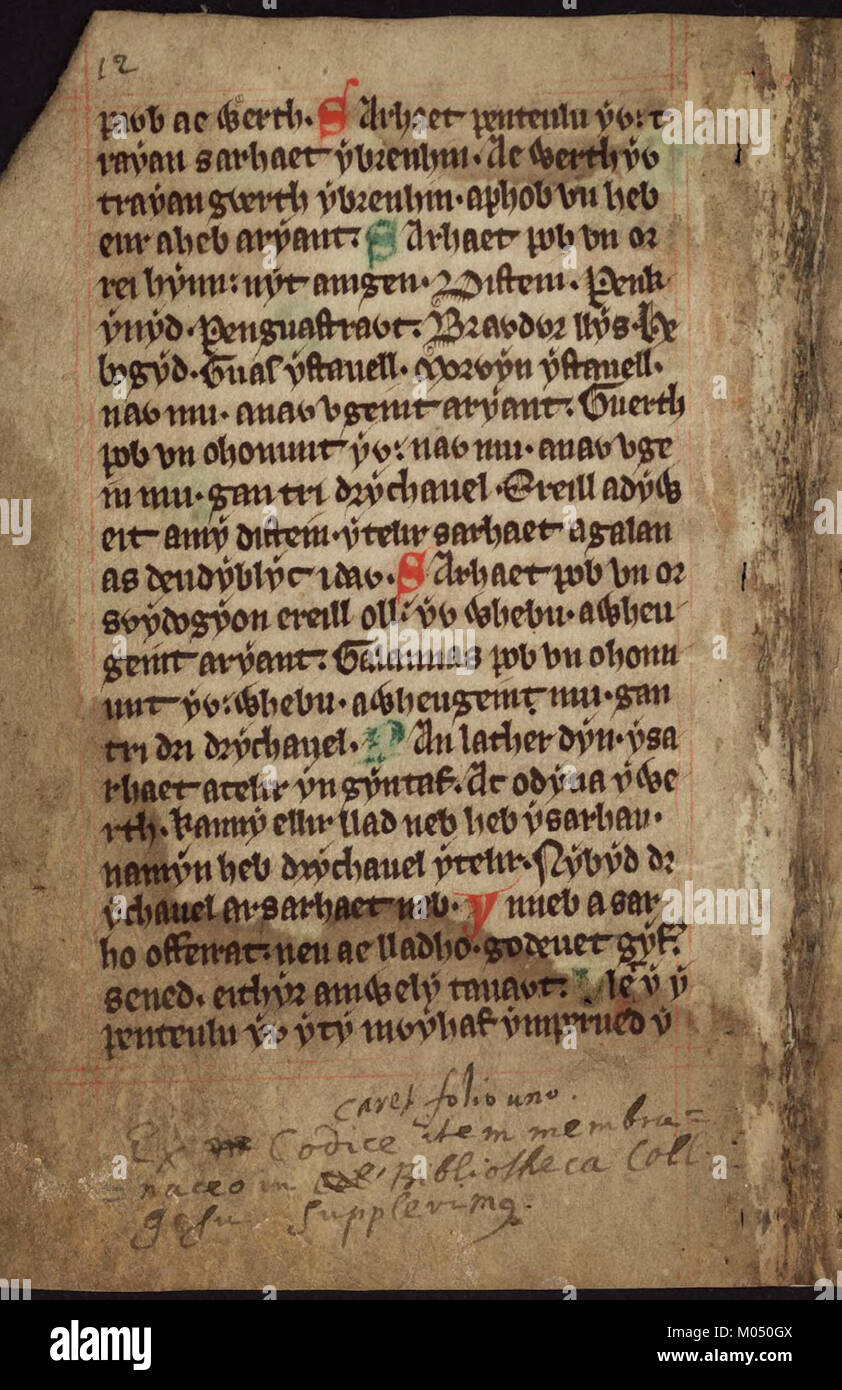 12
paỽb ae werth. Sarhaet penteulu yỽ: t
raẏan sarhaet ẏbrenhin. Ac werth ẏỽ
traẏan gwerth ẏbrenhin. aphob vn heb
eur aheb arẏant. Sarhaet pob vn or
rei hẏnn: nẏt amgen. Distein. Penk
ẏnẏd. Penguastraỽt. Braỽdỽr llẏs. He
bogẏd. Guas ẏstauell. Morỽẏn ẏstauell.
naỽ mu. anaỽ vgeint arẏant. Guerth
pob vn ohonunt ẏỽ: naỽ mu. anaỽ vge
in mu. gan tri drẏchauel. Ereill adẏw
eit amẏ distein. ẏtelir sarhaet agalan
as deudẏblẏc idaỽ. Sarhaet pob vn or
sỽẏdogẏon ereill oll: ẏỽ whebu. awheu
geint arẏant. Galannas pob vn ohonu
nnt ẏỽ: whebu. awheugeint mu. gan
tri dri drẏchauel. Pan lather dẏn. ẏsa
rhaet atelir ẏn gẏntaf. Ac odẏna ẏwe
rth. kannẏ ellir llad neb heb ẏsarhau.
namẏn heb drẏchauel ẏtelir. Nẏbẏd dr
ẏchauel ar sarhaet neb. Y nneb a sar
ho offeirat: neu ae lladho. godeuet gẏf.
sened. eithẏr amwelẏ tauaỽt. Lle ẏ ẏ
penteulu ẏỽ ẏtẏ mỽẏhaf ẏmperued ẏ
caret folio uno.
Ex Codice item membra=
=naceo in Bibliotheca Coll.
Jesu supplevimus.
alamy
Image ID: M050GX
www.alamy.com